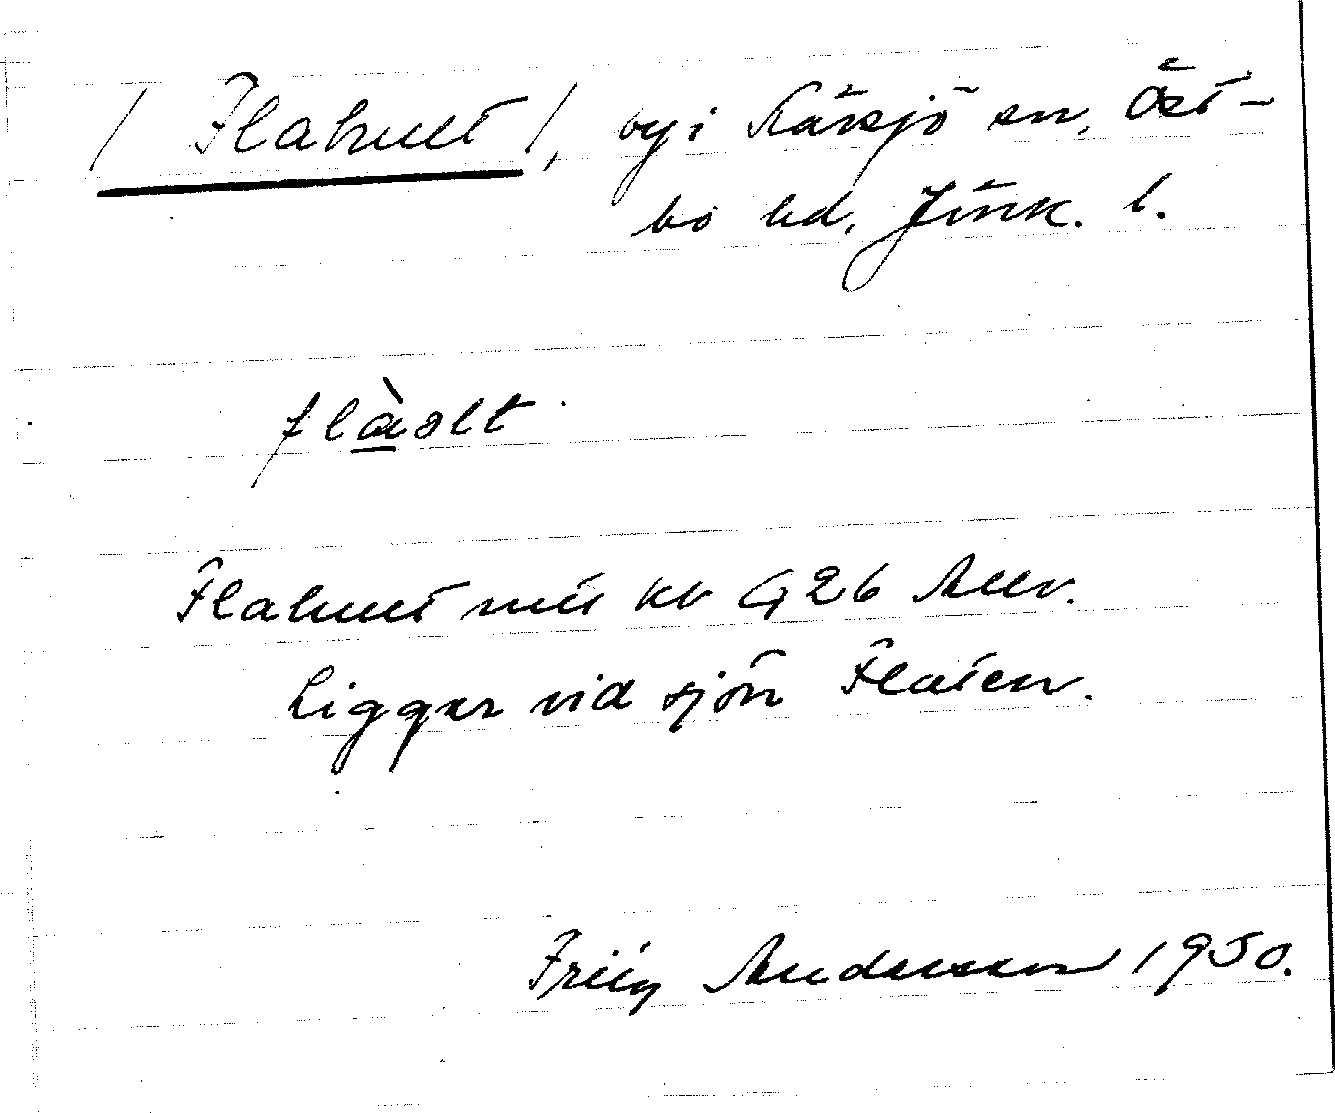 / Flahult /, by i Kävsjö sn, Öst-
bo hd, Jönk. l.
flàɑlt
Flahult mtl kv G26 Allv.
Ligger vid sjön Flaten.
Fritz Andersson 1950.